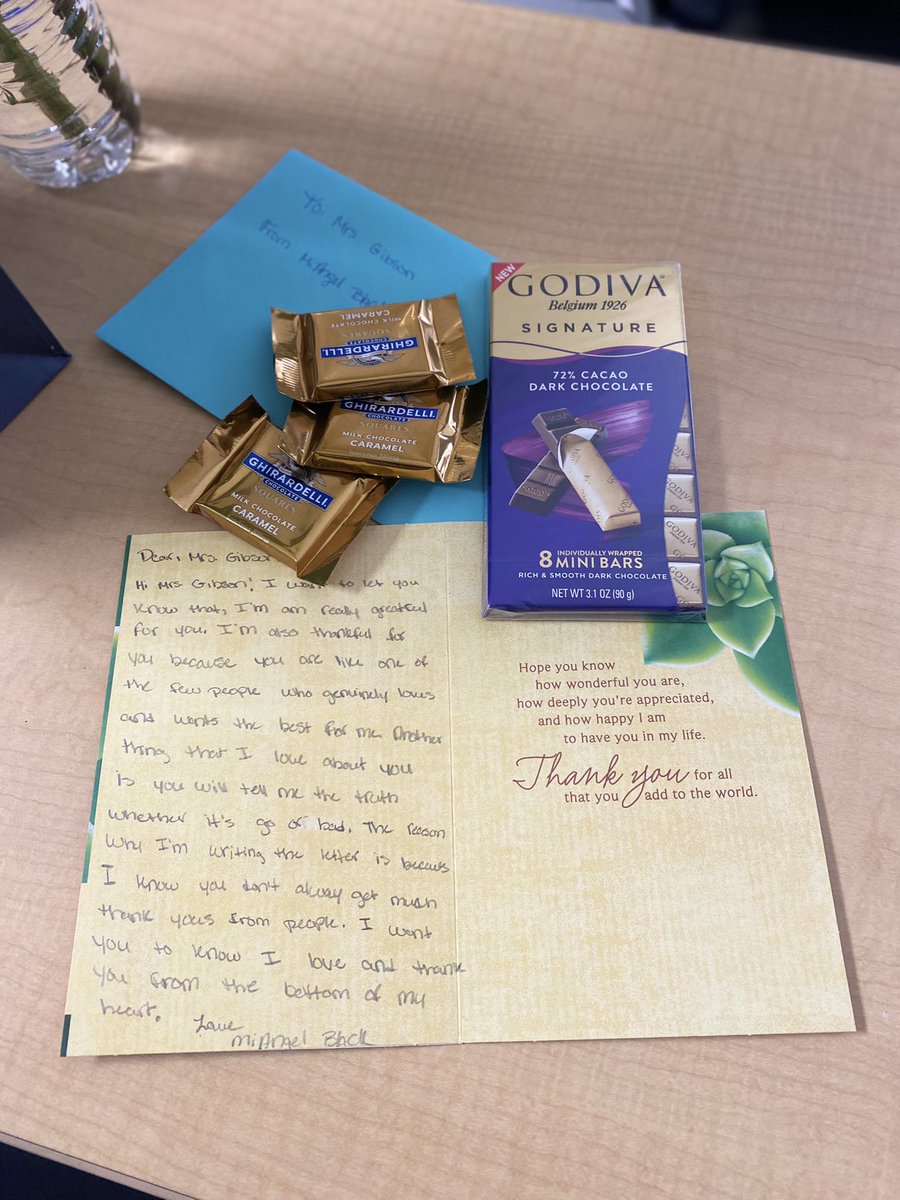 To: Mrs. Gibson
From: MiAngel
GHIRARDELLI
CHOCOLATE
SQUARES
MILK CHOCOLATE
CARAMEL
GHIRARDELLI
CHOCOLATE
SQUARES
MILK CHOCOLATE
CARAMEL
luscious filling
GHIRARDELLI
CHOCOLATE
SQUARES
MILK CHOCOLATE
CARAMEL
NEW
GODIVA
Belgium 1926
SIGNATURE
72% CACAO
DARK CHOCOLATE
GODIVA
GODIVA
GODIVA
GODIVA
8 INDIVIDUALLY WRAPPED
MINI BARS
RICH & SMOOTH DARK CHOCOLATE
NET WT 3.1 OZ (90 g)
Dear, Mrs. Gibson
Hi Mrs Gibson! I want to let you
know that, I'm am really greatful
for you. I'm also thankful for
you because you are like one of
the few people who genuinely loves
and wants the best for me. Another
thing that I love about you
is you will tell me the truth
whether it's go or bad. The reason
why I'm writing the letter is becaus
I know you don't alway get much
thank yous from people. I want
you to know I love and thank
you from the bottom of my
heart.
Love
MiAngel
Hope you know
how wonderful you are,
how deeply you're appreciated,
and how happy I am
to have you in my life.
Thank you for all
that you add to the world.